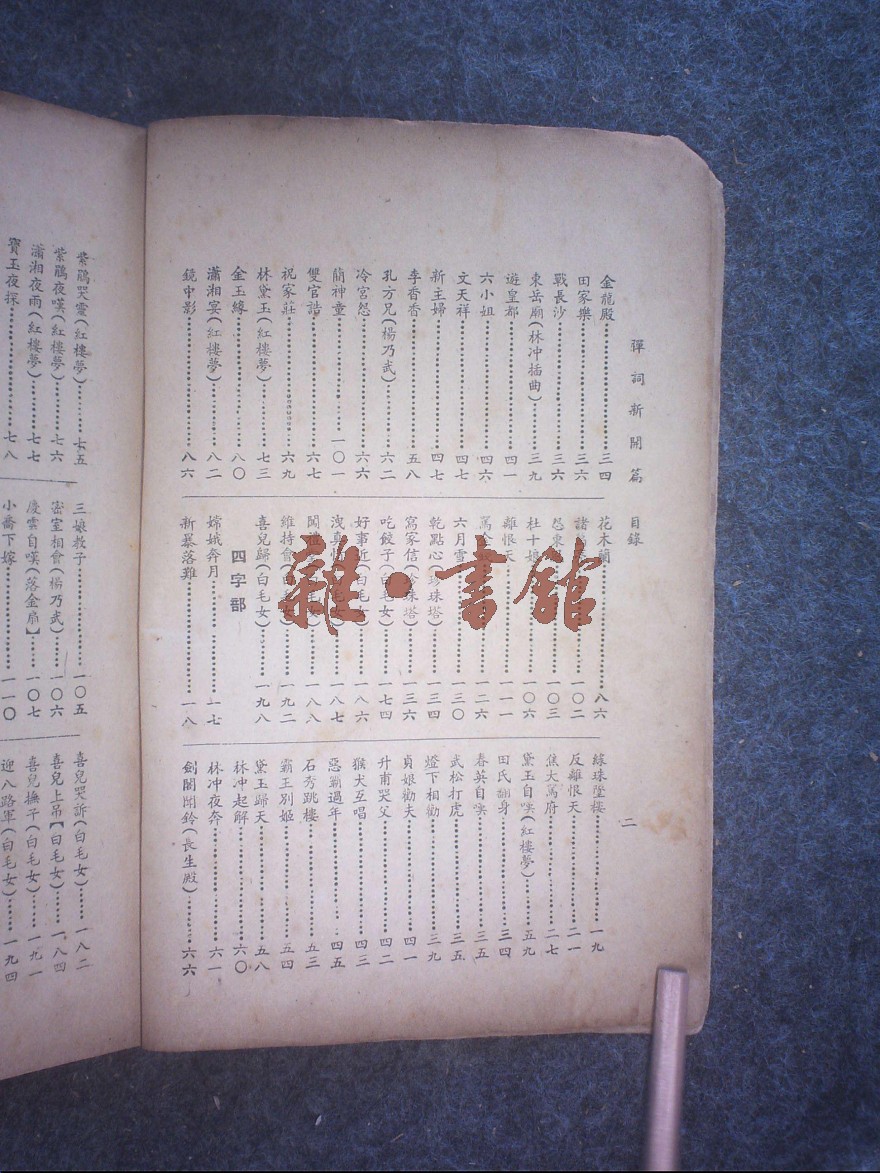 彈詞新開篇 目錄
二
金龍殿……三四
田家樂……三六
戰長沙……三六
東岳廟(林冲插曲)……三九
遊皇都……四一
六小姐……四六
文天祥……四七
新主婦……四七
李香香……五八
孔方兄(楊乃武)……六二
冷宮怨……六六
簡神童……一〇一
雙官誥……六七
祝家莊……六九
林黛玉(紅樓夢)……七三
金玉緣……八〇
瀟湘宴(紅樓夢)……八二
鏡中影……八六
花木蘭……八六
一〇二
一〇三
杜十娘……一〇六
離恨天……一一一
一二六
六月雪……一三〇
乾點心(珍珠塔)……一三四
寫家信(珍珠塔)……一三六
吃餃子(白毛女)……一七四
好事近(白毛女)……一八六
一八七
一八八
維持會(白毛女)……一九二
喜兒歸(白毛女)……一九八
四字部
嫦娥奔月……一七
新暴落難……一八
綠珠墜樓……一九
反離恨天……二一
焦大罵府……二七
黛玉自嘆(紅樓夢)……五九
田氏翻身……三四
春英自嘆……三五
武松打虎……三五
燈下相勸……三九
貞娘勸夫……四一
升甫哭父……四二
猴犬互唱……四三
惡霸過年……四五
石秀跳樓……五三
霸王別姬……五四
黛玉歸天……五八
林冲起解……六〇
林冲夜奔……六一
劍閣聞鈴(長生殿)……六六
紫鵑哭靈(紅樓夢)……七五
紫鵑夜嘆(紅樓夢)……七六
瀟湘夜雨(紅樓夢)……七七
寶玉夜探……七八
三娘教子……一〇五
密室相會(楊乃武)……一〇六
慶雲自嘆(落金扇】……一〇七
小喬下嫁……一一〇
喜兒哭訴(白毛女)……一八二
喜兒上吊【白毛女)……一八四
喜兒撫子(白毛女)……一九一
迎八路軍(白毛女)……一九四
雜·書館